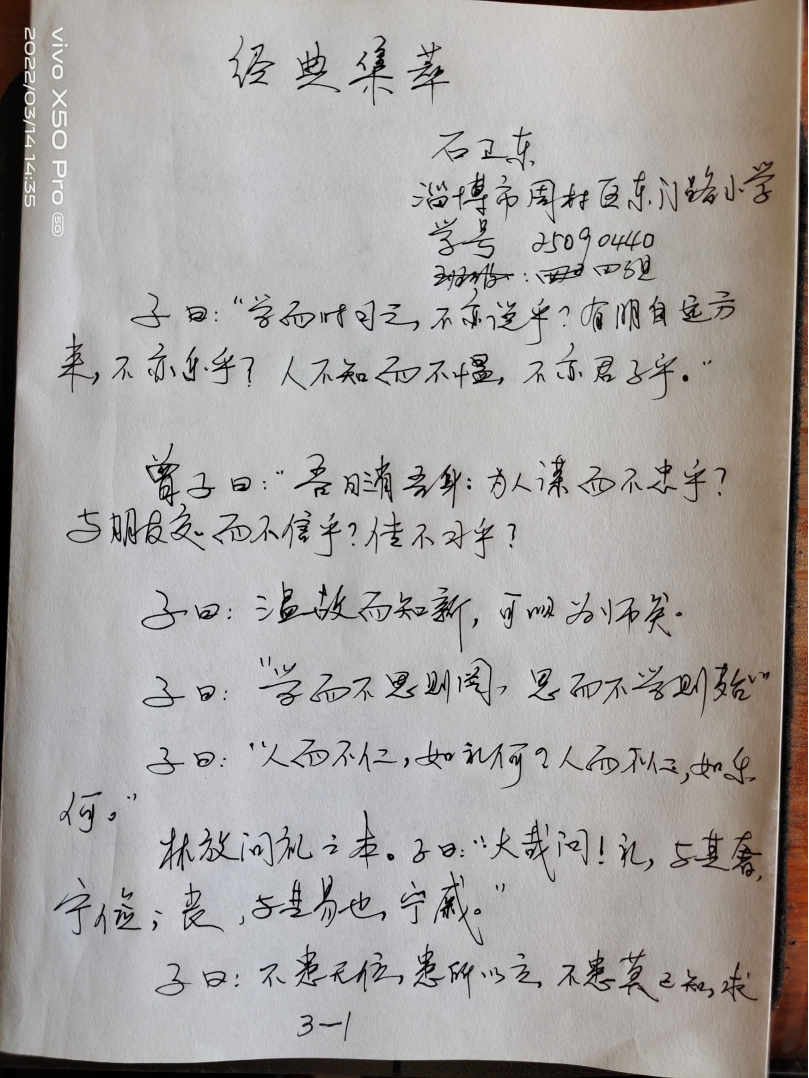 vivo X50 Pro 5G
2022/03/14 14:35
经典集萃
石卫东
淄博市周村区东门路小学
学号 25090440
四组
子曰:“学而时习之,不亦说乎?有朋自远方
来,不亦乐乎?人不知而不愠,不亦君子乎。”
曾子曰:“吾日三省吾身:为人谋而不忠乎?
与朋友交而不信乎?传不习乎?
子曰:温故而知新,可以为师矣。
子曰:“学而不思则罔,思而不学则殆”
子曰:“人而不仁,如礼何?人而不仁,如乐
何。”
林放问礼之本。子曰:“大哉问!礼,与其奢,
宁俭;丧,与其易也,宁戚。”
子曰:不患无位,患所以立,不患莫己知,求
3-1